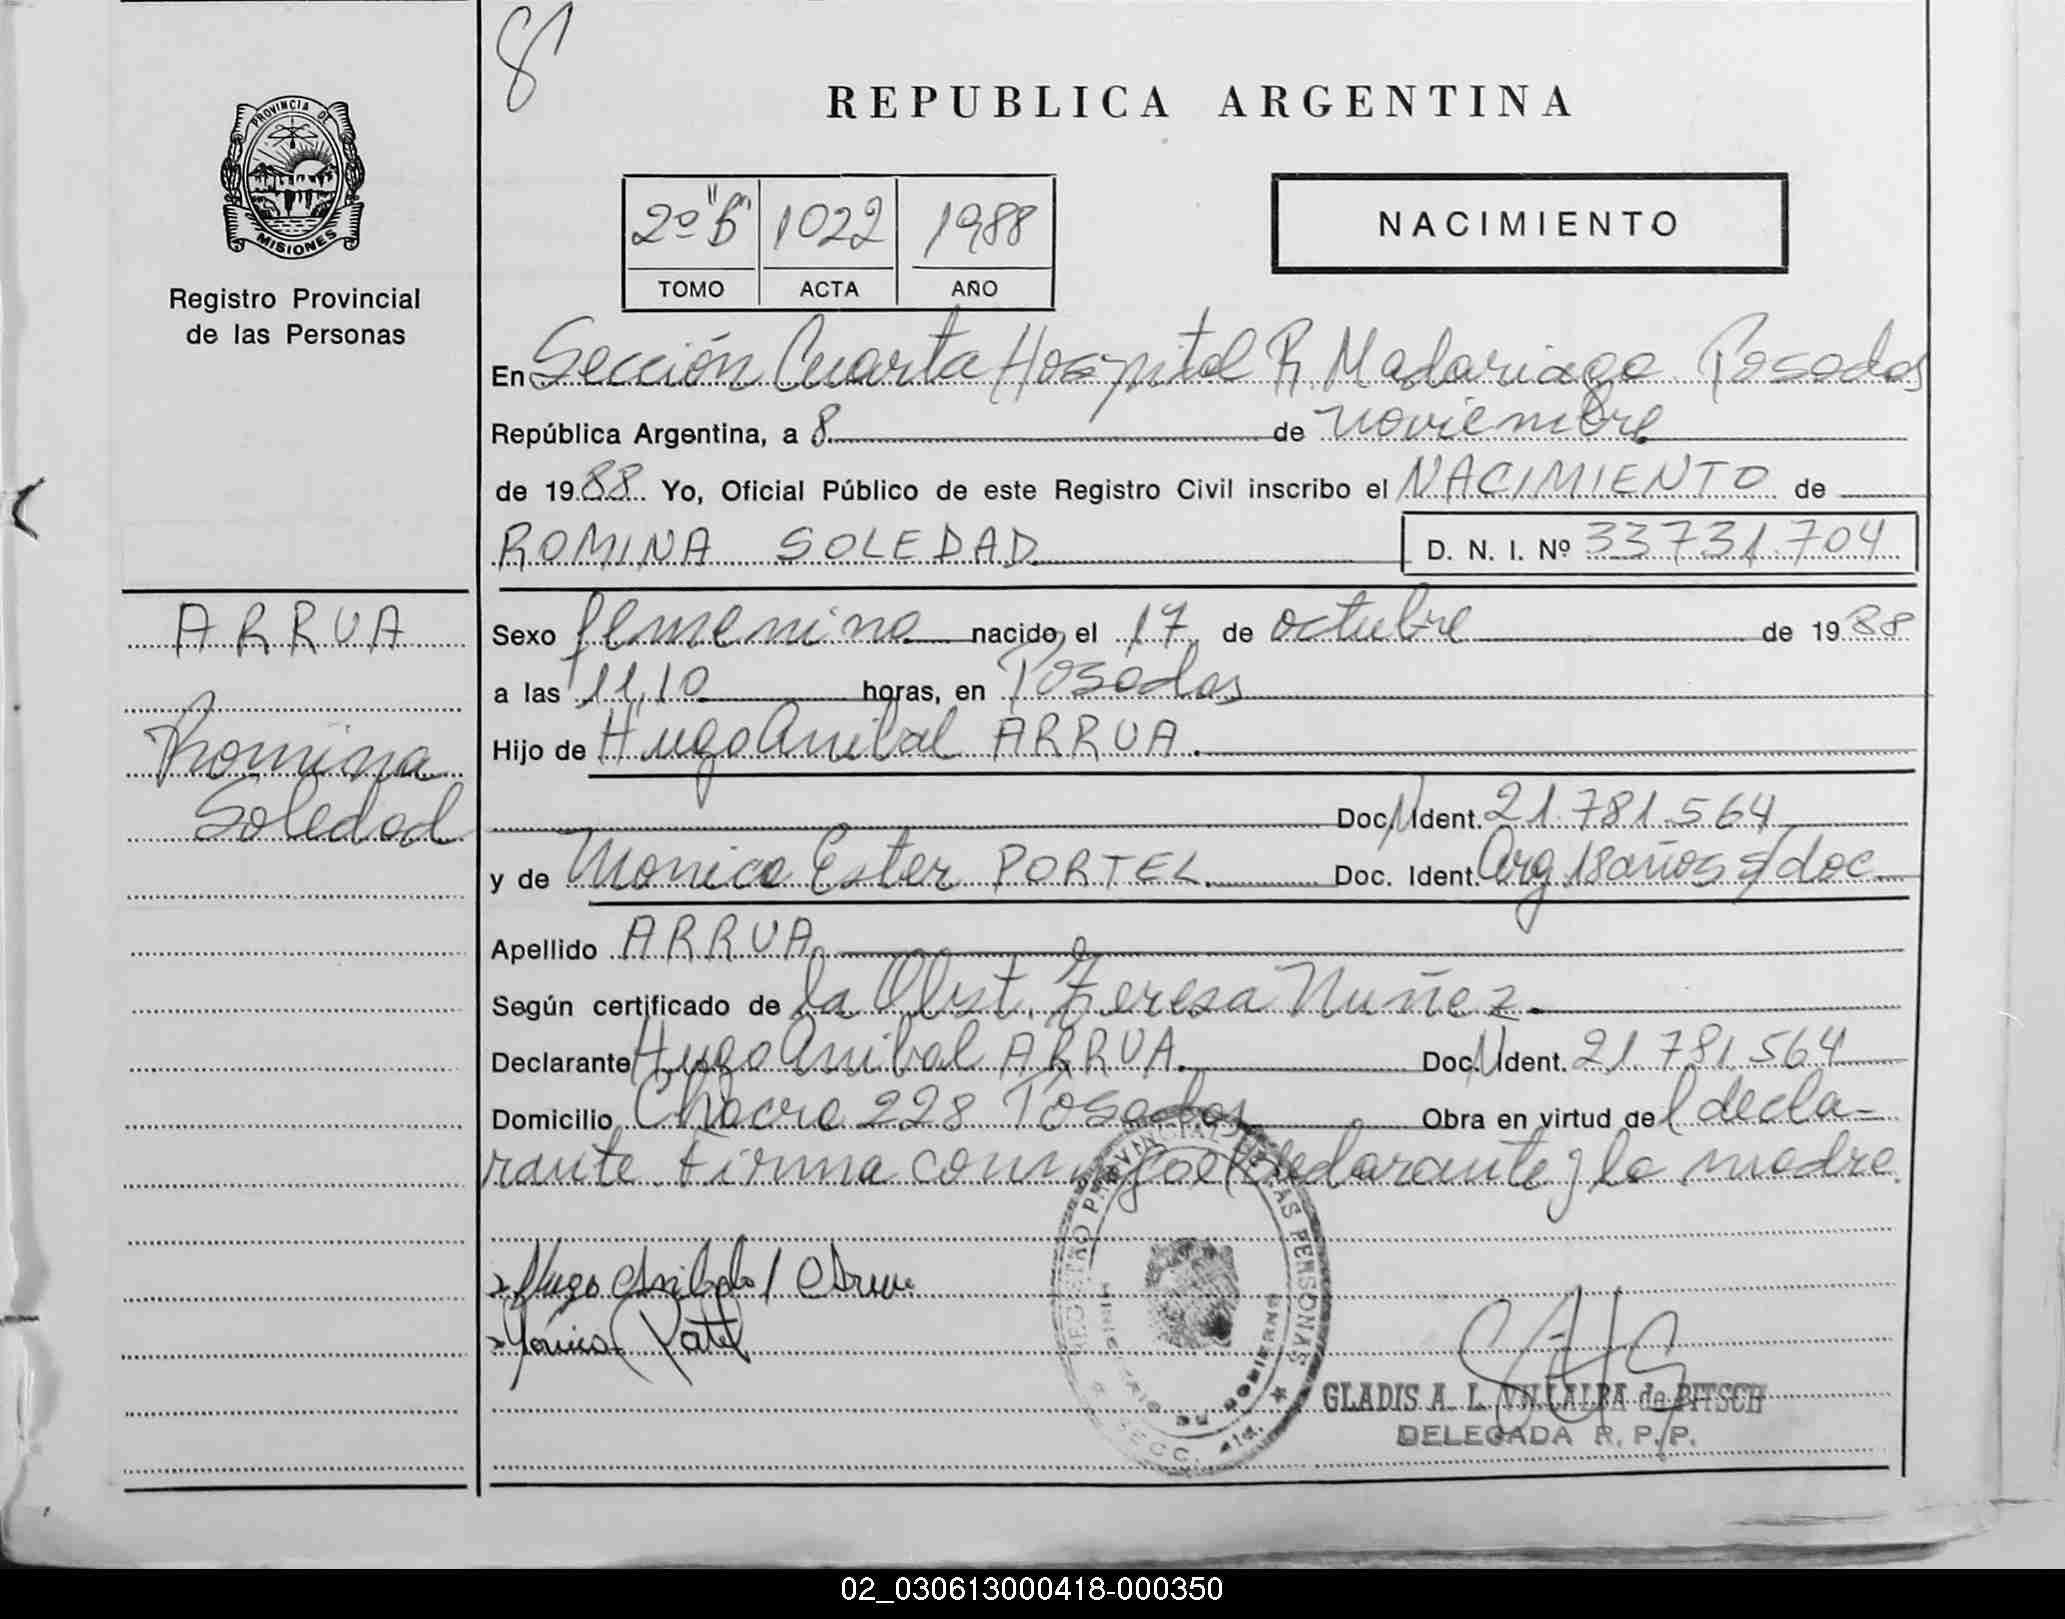 8
PROVINCIA DE
MISIONES
Registro Provincial
de las Personas
REPUBLICA ARGENTINA
2º "B" 1022 1988
TOMO ACTA AÑO
NACIMIENTO
En Sección Cuarta Hospital R. Madariaga Posadas
República Argentina, a 8 de noviembre
de 1988 Yo, Oficial Público de este Registro Civil inscribo el NACIMIENTO de
ROMINA SOLEDAD D. N. I. Nº 33731.704
ARRUA
Romina
Soledad
Sexo femenino nacido el 17 de octubre de 1988
a las 11,10 horas, en Posadas
Hijo de Hugo Anibal ARRUA
Doc. N Ident. 21.781.564
y de Monica Ester PORTEL Doc. Ident. Arg 18 años s/doc
Apellido ARRUA
Según certificado de la Obst. Teresa Nuñez
Declarante Hugo Anibal ARRUA Doc. N Ident. 21.781.564
Domicilio Chacra 228 Posadas Obra en virtud del decla-
rante. Firma conmigo el declarante y la madre.
REGISTRO PROVINCIAL DE LAS PERSONAS
MINISTERIO DE GOBIERNO
SECC. 4ta.
GLADIS A. L. VILLALBA de PITSCH
DELEGADA R. P. P.
02_030613000418-000350